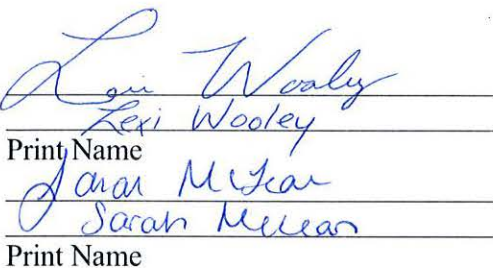 Lexi Wooley
Lexi Wooley
Print Name
Sarah McLean
Sarah McLean
Print Name